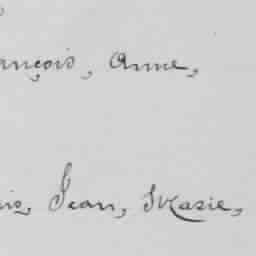 ançois, Anne,
is, Jean, Marie,